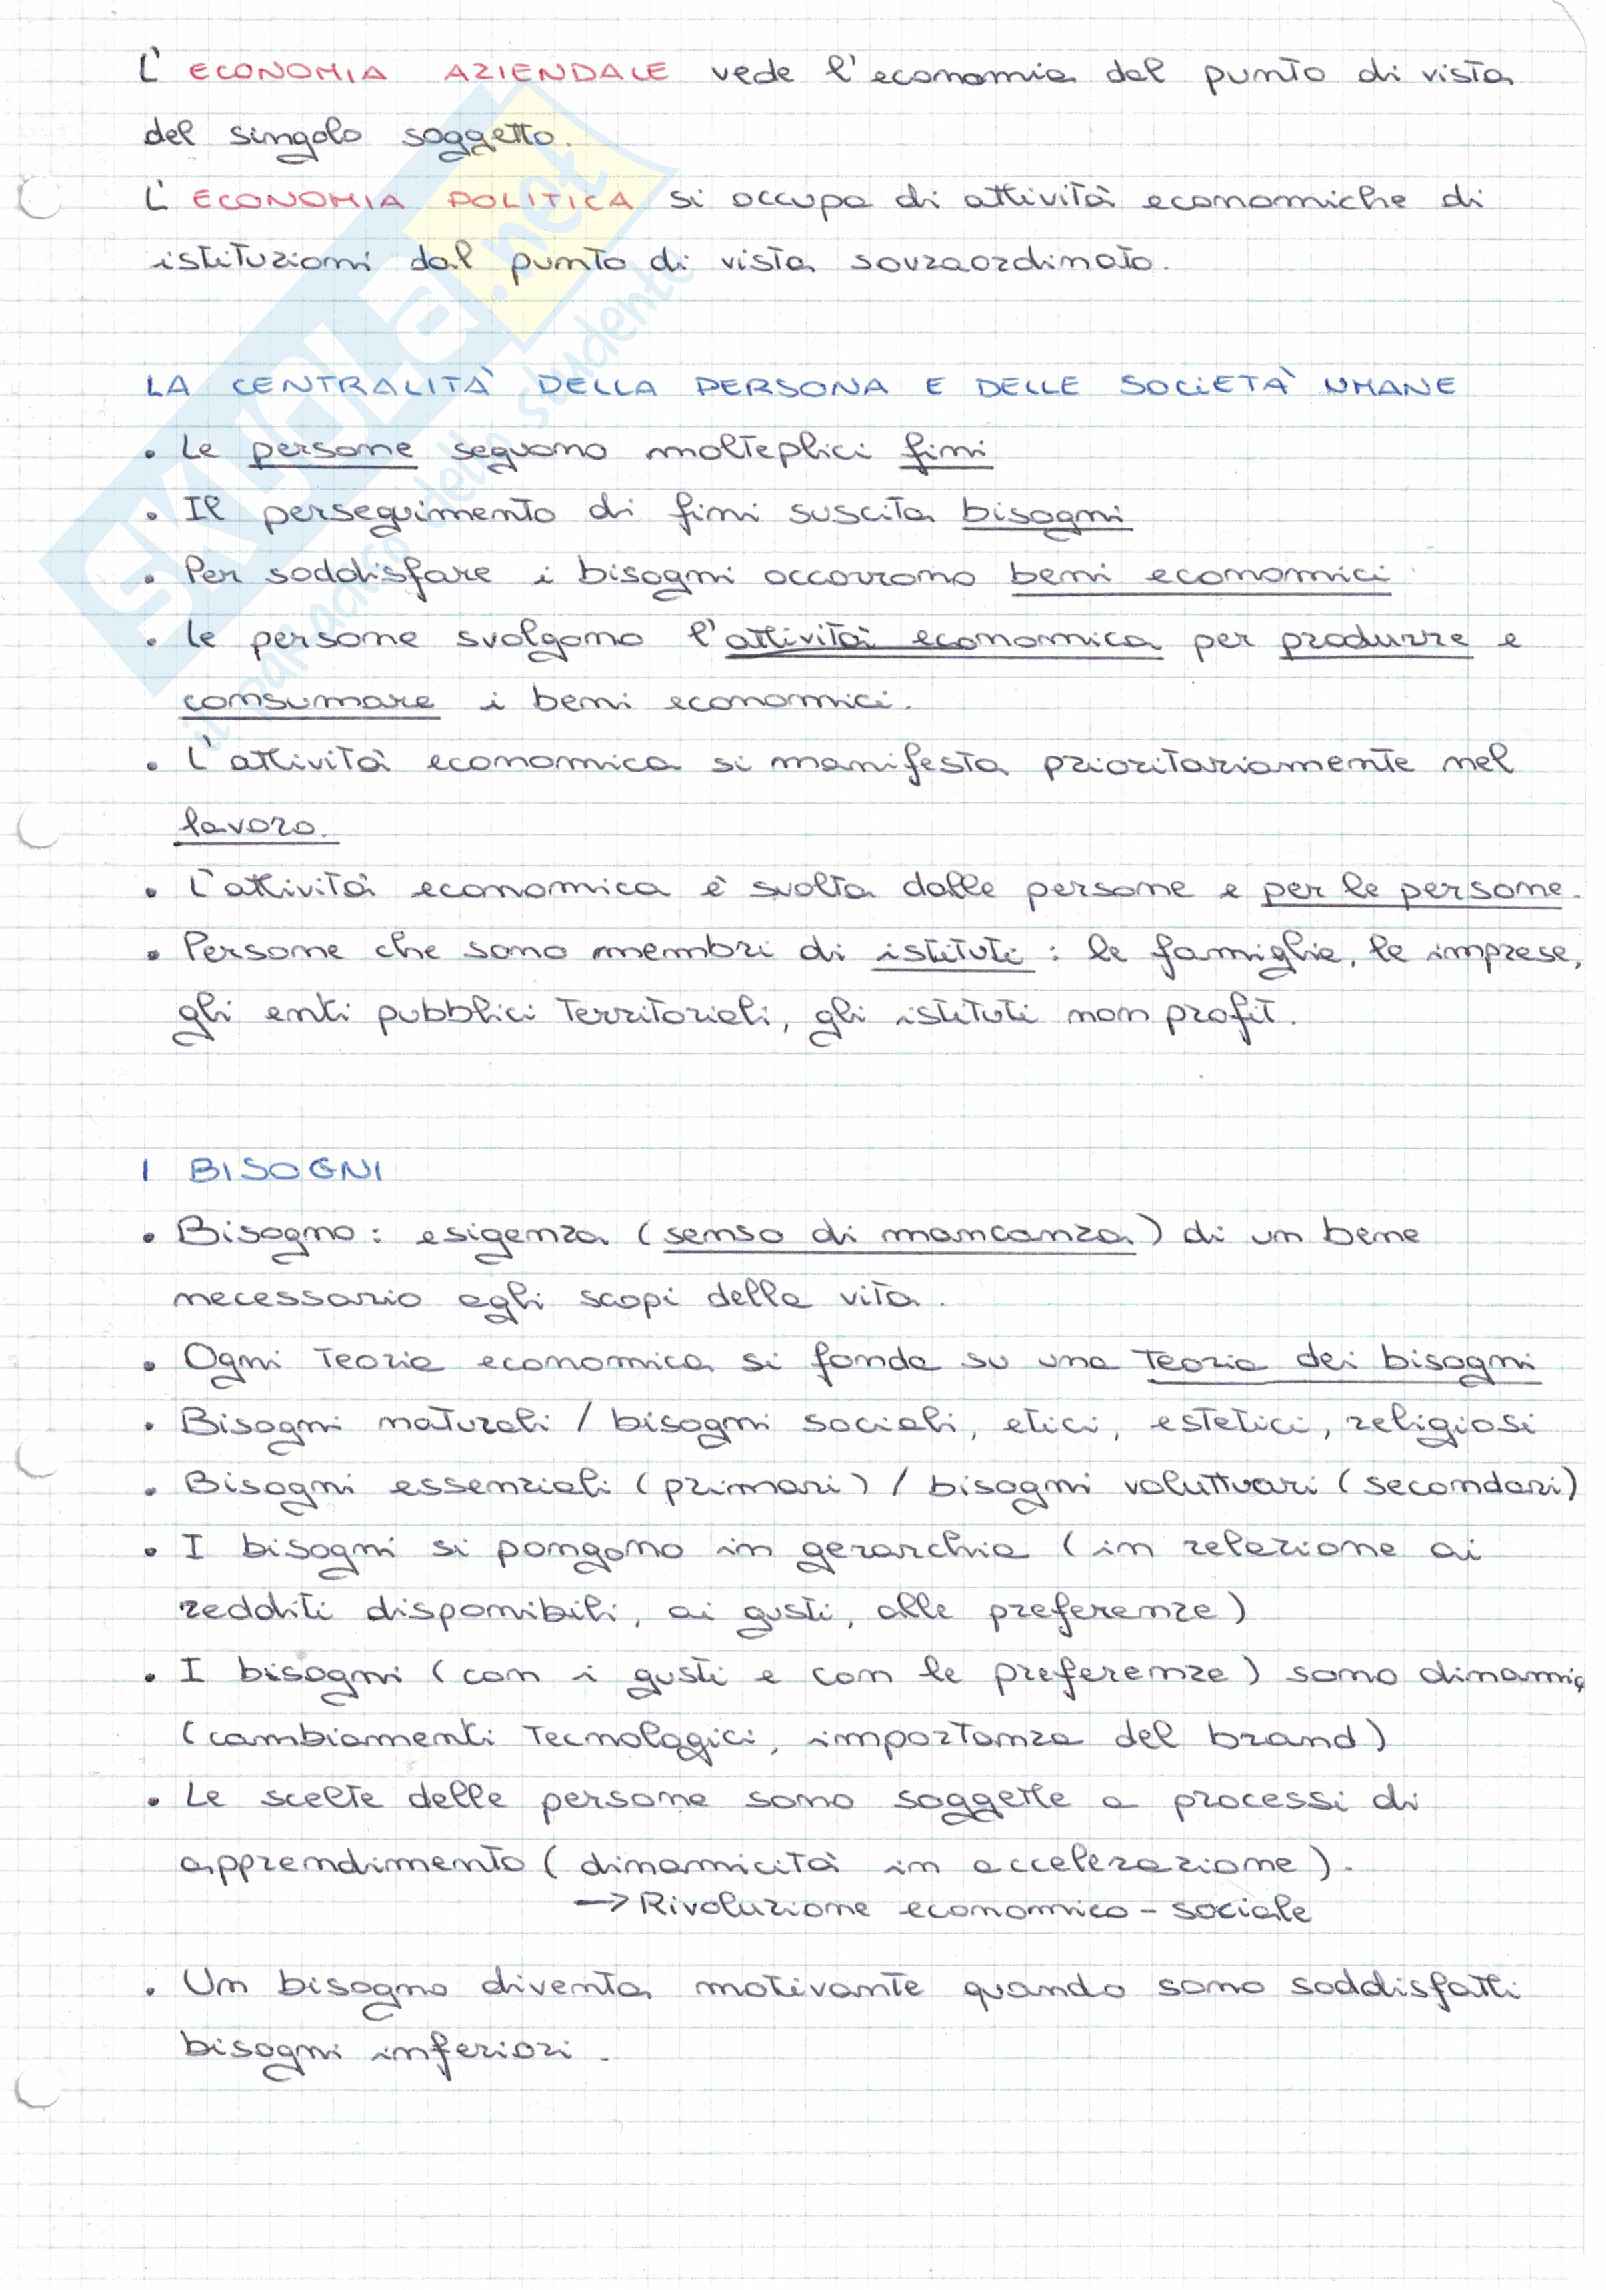 L' ECONOMIA AZIENDALE vede l'economia dal punto di vista
del singolo soggetto.
L' ECONOMIA POLITICA si occupa di attività economiche di
istituzioni dal punto di vista sovraordinato.
LA CENTRALITÀ DELLA PERSONA E DELLE SOCIETÀ UMANE
• Le persone seguono molteplici fini
• Il perseguimento di fini suscita bisogni
• Per soddisfare i bisogni occorrono beni economici
• Le persone svolgono l'attività economica per produrre e
consumare i beni economici.
• L'attività economica si manifesta prioritariamente nel
lavoro.
• L'attività economica è svolta dalle persone e per le persone.
• Persone che sono membri di istituti: le famiglie, le imprese,
gli enti pubblici territoriali, gli istituti non profit.
I BISOGNI
• Bisogno: esigenza (senso di mancanza) di un bene
necessario agli scopi della vita.
• Ogni teoria economica si fonda su una teoria dei bisogni
• Bisogni naturali / bisogni sociali, etici, estetici, religiosi
• Bisogni essenziali (primari) / bisogni voluttuari (secondari)
• I bisogni si pongono in gerarchia (in relazione ai
redditi disponibili, ai gusti, alle preferenze)
• I bisogni (con i gusti e con le preferenze) sono dinamic
(cambiamenti tecnologici, importanza del brand)
• Le scelte delle persone sono soggette a processi di
apprendimento (dinamicità in accelerazione).
→ Rivoluzione economico - sociale
• Un bisogno diventa motivante quando sono soddisfatti
bisogni inferiori.
SKUOLA.net
il paradiso dello studente